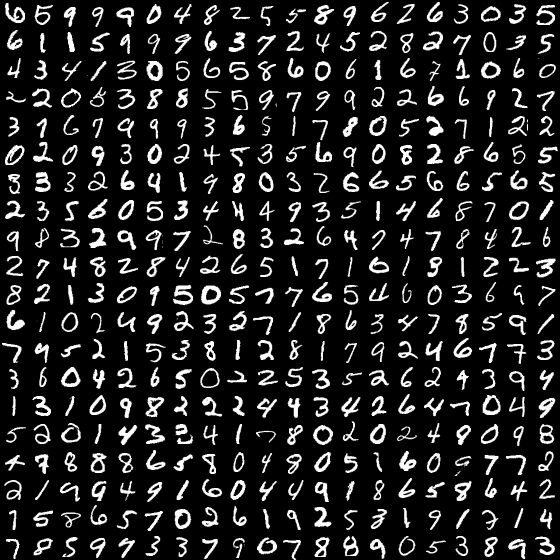 6 5 9 9 9 0 4 8 2 5 5 8 9 6 2 6 3 0 3 5
6 1 1 5 9 9 9 6 3 7 2 4 5 2 8 2 7 0 3 5
4 3 4 1 3 0 5 6 5 8 6 0 6 1 6 7 1 0 6 0
2 2 0 8 3 8 8 5 5 9 7 9 9 2 2 6 6 9 2 7
3 1 6 7 9 9 9 3 6 5 1 7 8 0 5 2 7 1 2 2
0 2 0 9 3 0 2 4 5 3 5 6 9 0 8 2 8 6 5 5
8 3 3 2 6 4 1 9 8 0 3 2 6 6 5 6 6 5 6 5
2 3 5 6 0 5 3 4 4 4 9 3 5 1 4 6 8 7 0 1
9 8 3 2 9 9 7 2 8 3 2 6 4 7 4 7 8 4 2 6
2 7 4 8 2 8 4 2 6 5 1 7 1 0 1 3 1 2 2 3
8 2 1 3 0 9 5 0 5 7 7 6 5 4 6 0 3 6 9 7
6 1 0 2 4 9 2 3 2 7 1 8 6 3 4 7 8 5 9 1
7 9 5 2 1 5 3 8 1 2 8 1 7 9 2 4 6 7 7 3
3 6 0 4 2 6 5 0 2 2 5 3 5 2 6 2 4 3 9 4
1 3 1 0 9 8 2 2 2 4 4 3 4 2 6 4 7 0 4 9
5 2 0 1 4 3 3 4 1 7 8 0 2 0 2 4 9 0 9 8
4 7 8 8 8 6 5 8 0 4 8 0 5 1 6 0 9 7 7 2
2 1 9 9 4 9 1 6 0 4 4 9 1 8 6 5 8 6 4 2
1 5 8 6 5 7 0 2 6 1 9 2 5 3 1 9 1 7 1 4
7 8 5 9 7 3 3 7 9 0 7 8 8 9 0 5 3 8 9 3